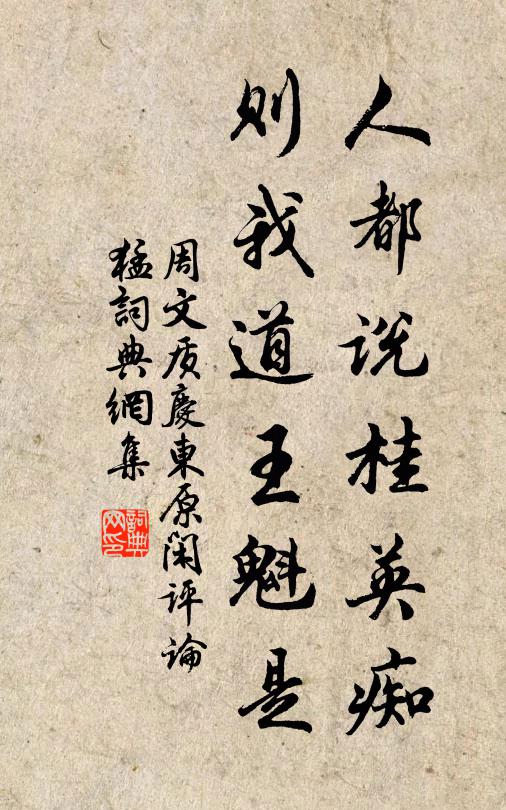 人都说桂英痴
则我道王魁是
周文质慶東原闲评論
猛詞典網集
詞典网印